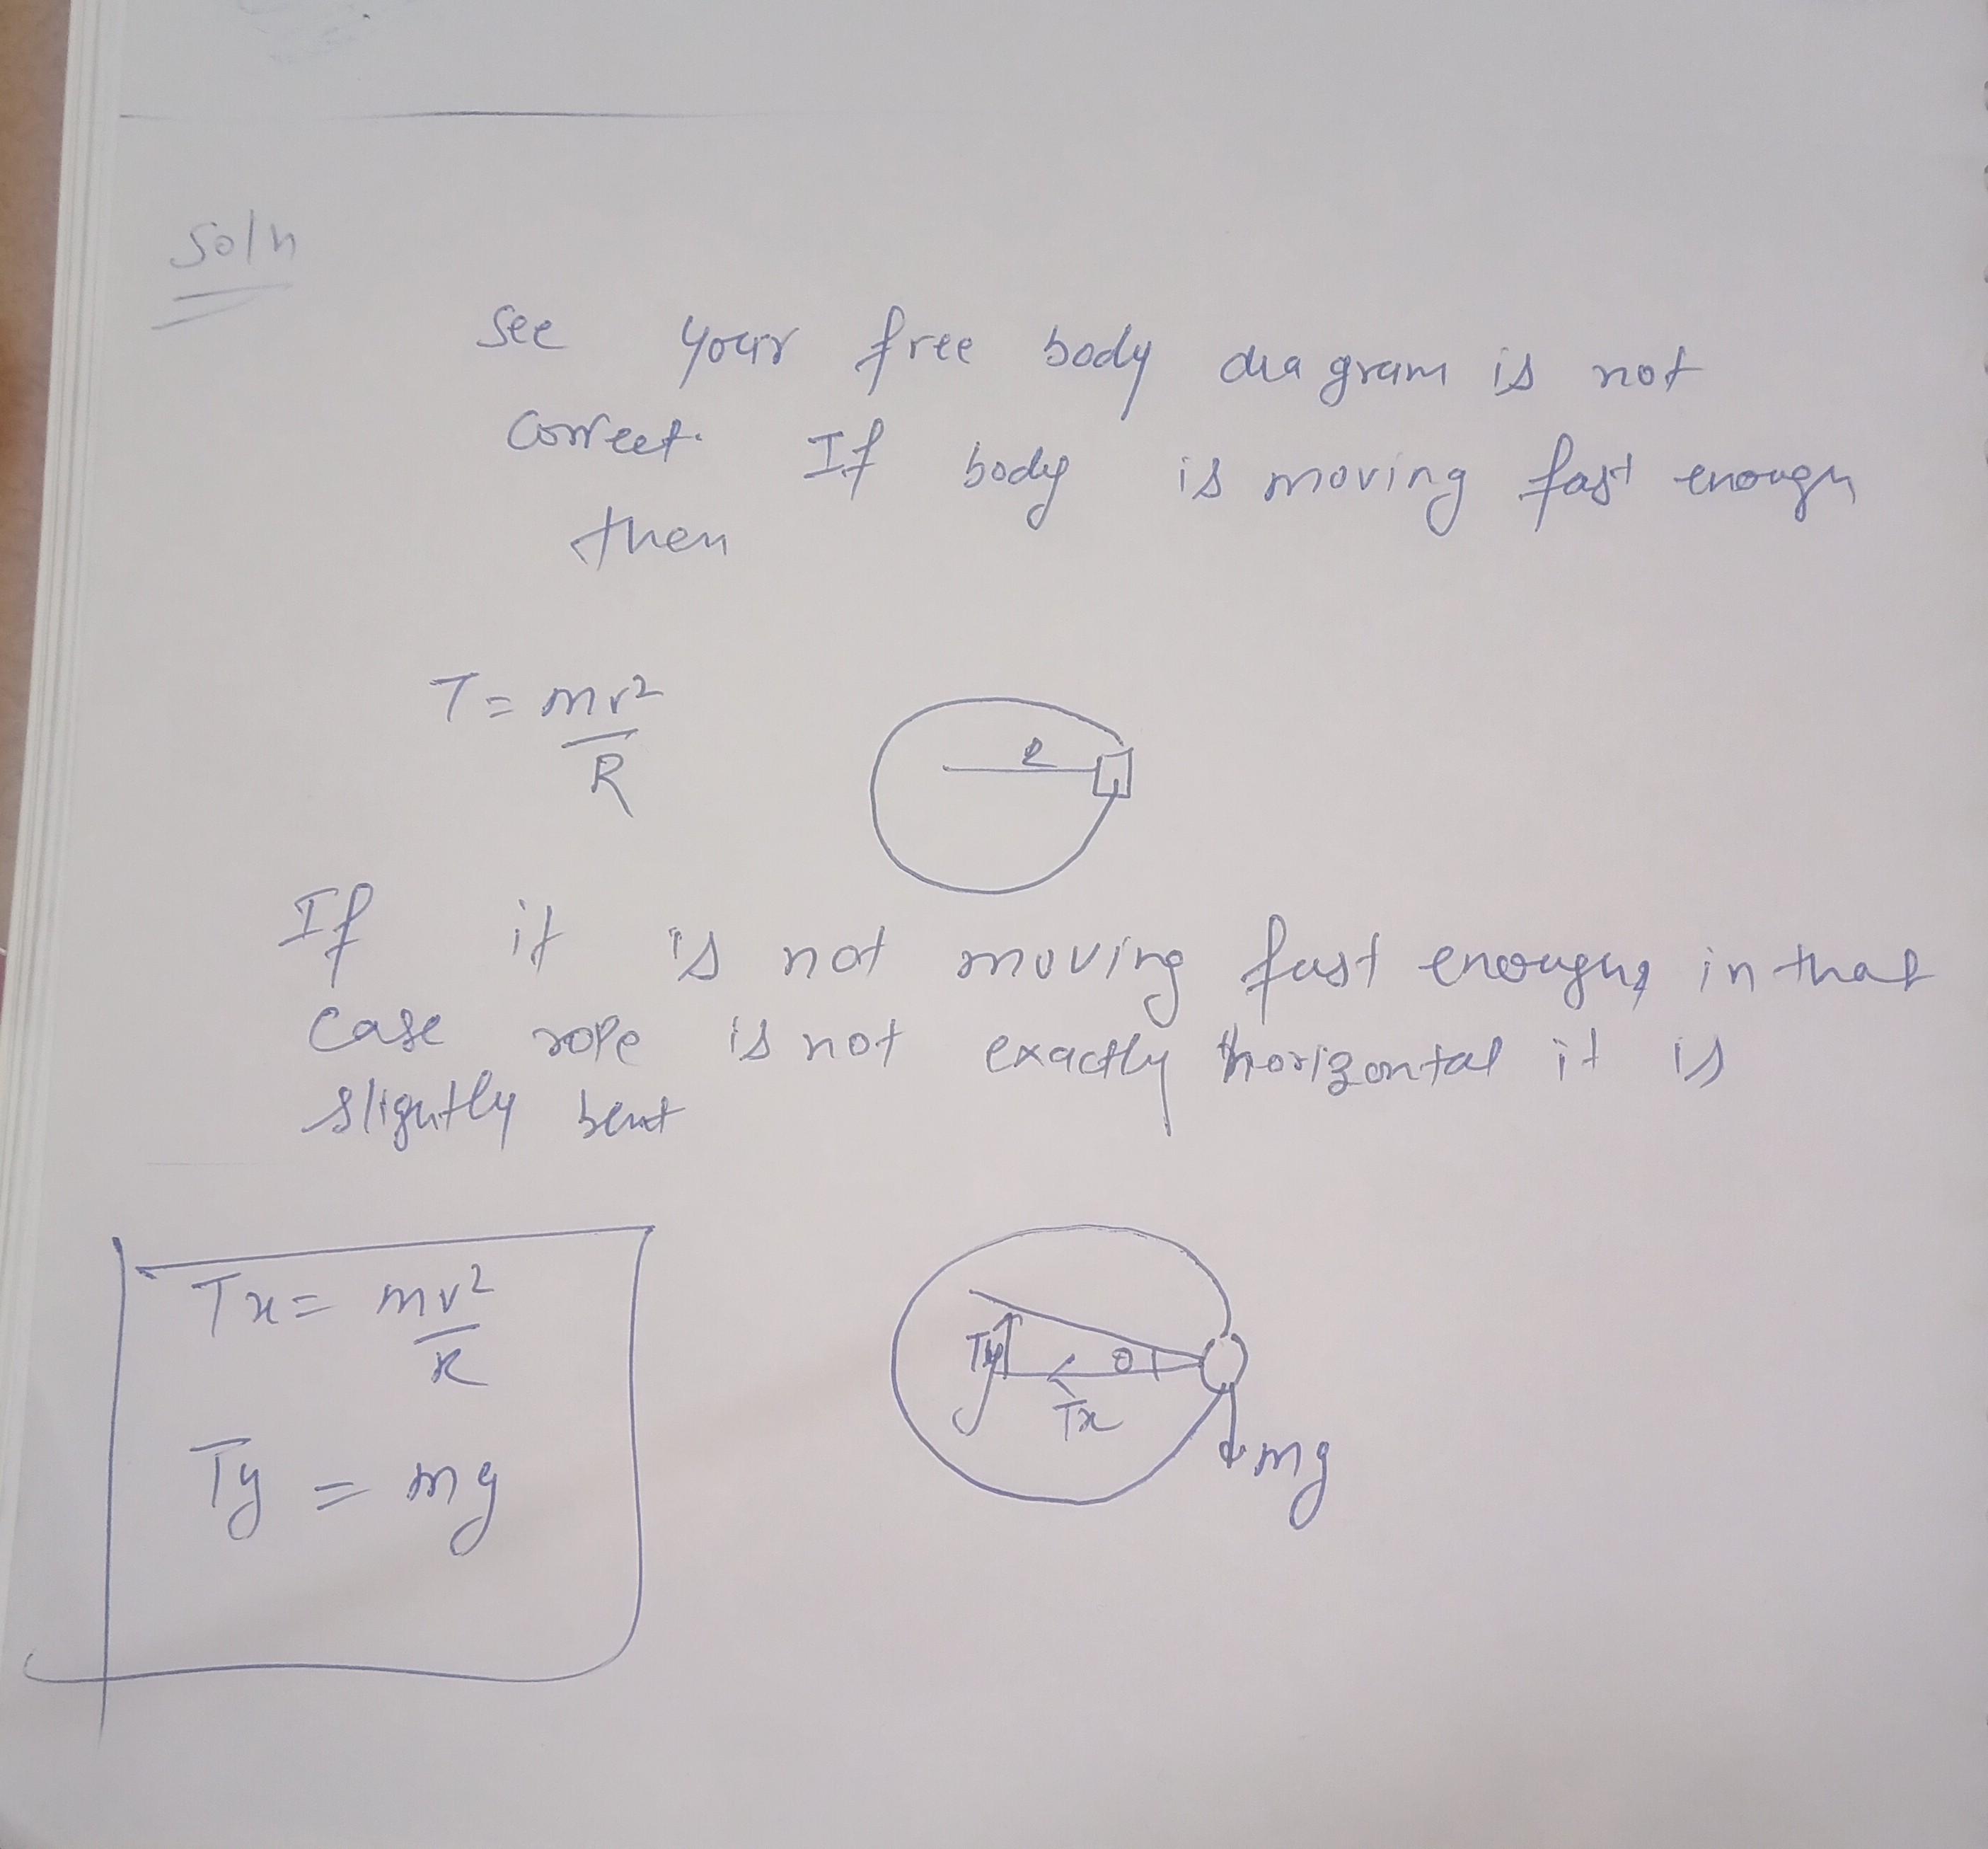 Soln
see your free body diagram is not
correct. If body is moving fast enough
then
T = mv²
R
R
If it is not moving fast enough, in that
case rope is not exactly horizontal it is
slightly bent
Tx = mv²
R
Ty = mg
Ty
θ
Tx
mg